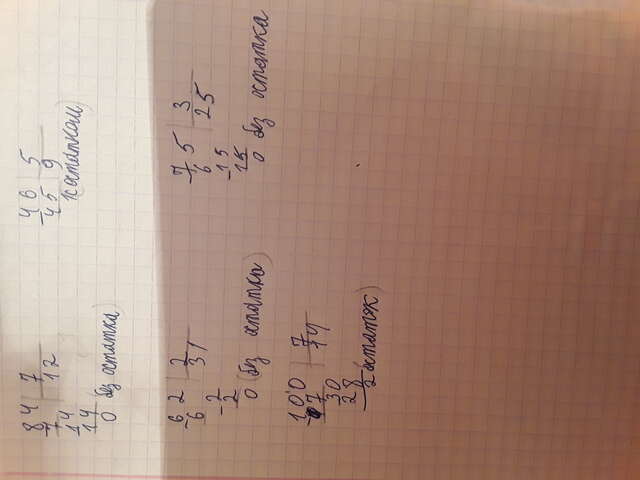 84 | 7
-7 | 12
14
-14
0 (без остатка)
46 | 5
-45 | 9
1(остаток)
62 | 2
-6 | 31
-2
2
0 (без остатка)
75 | 3
-6 | 25
-15
15
0 без остатка
100 | 7
-7 | 14
30
28
2(остаток)